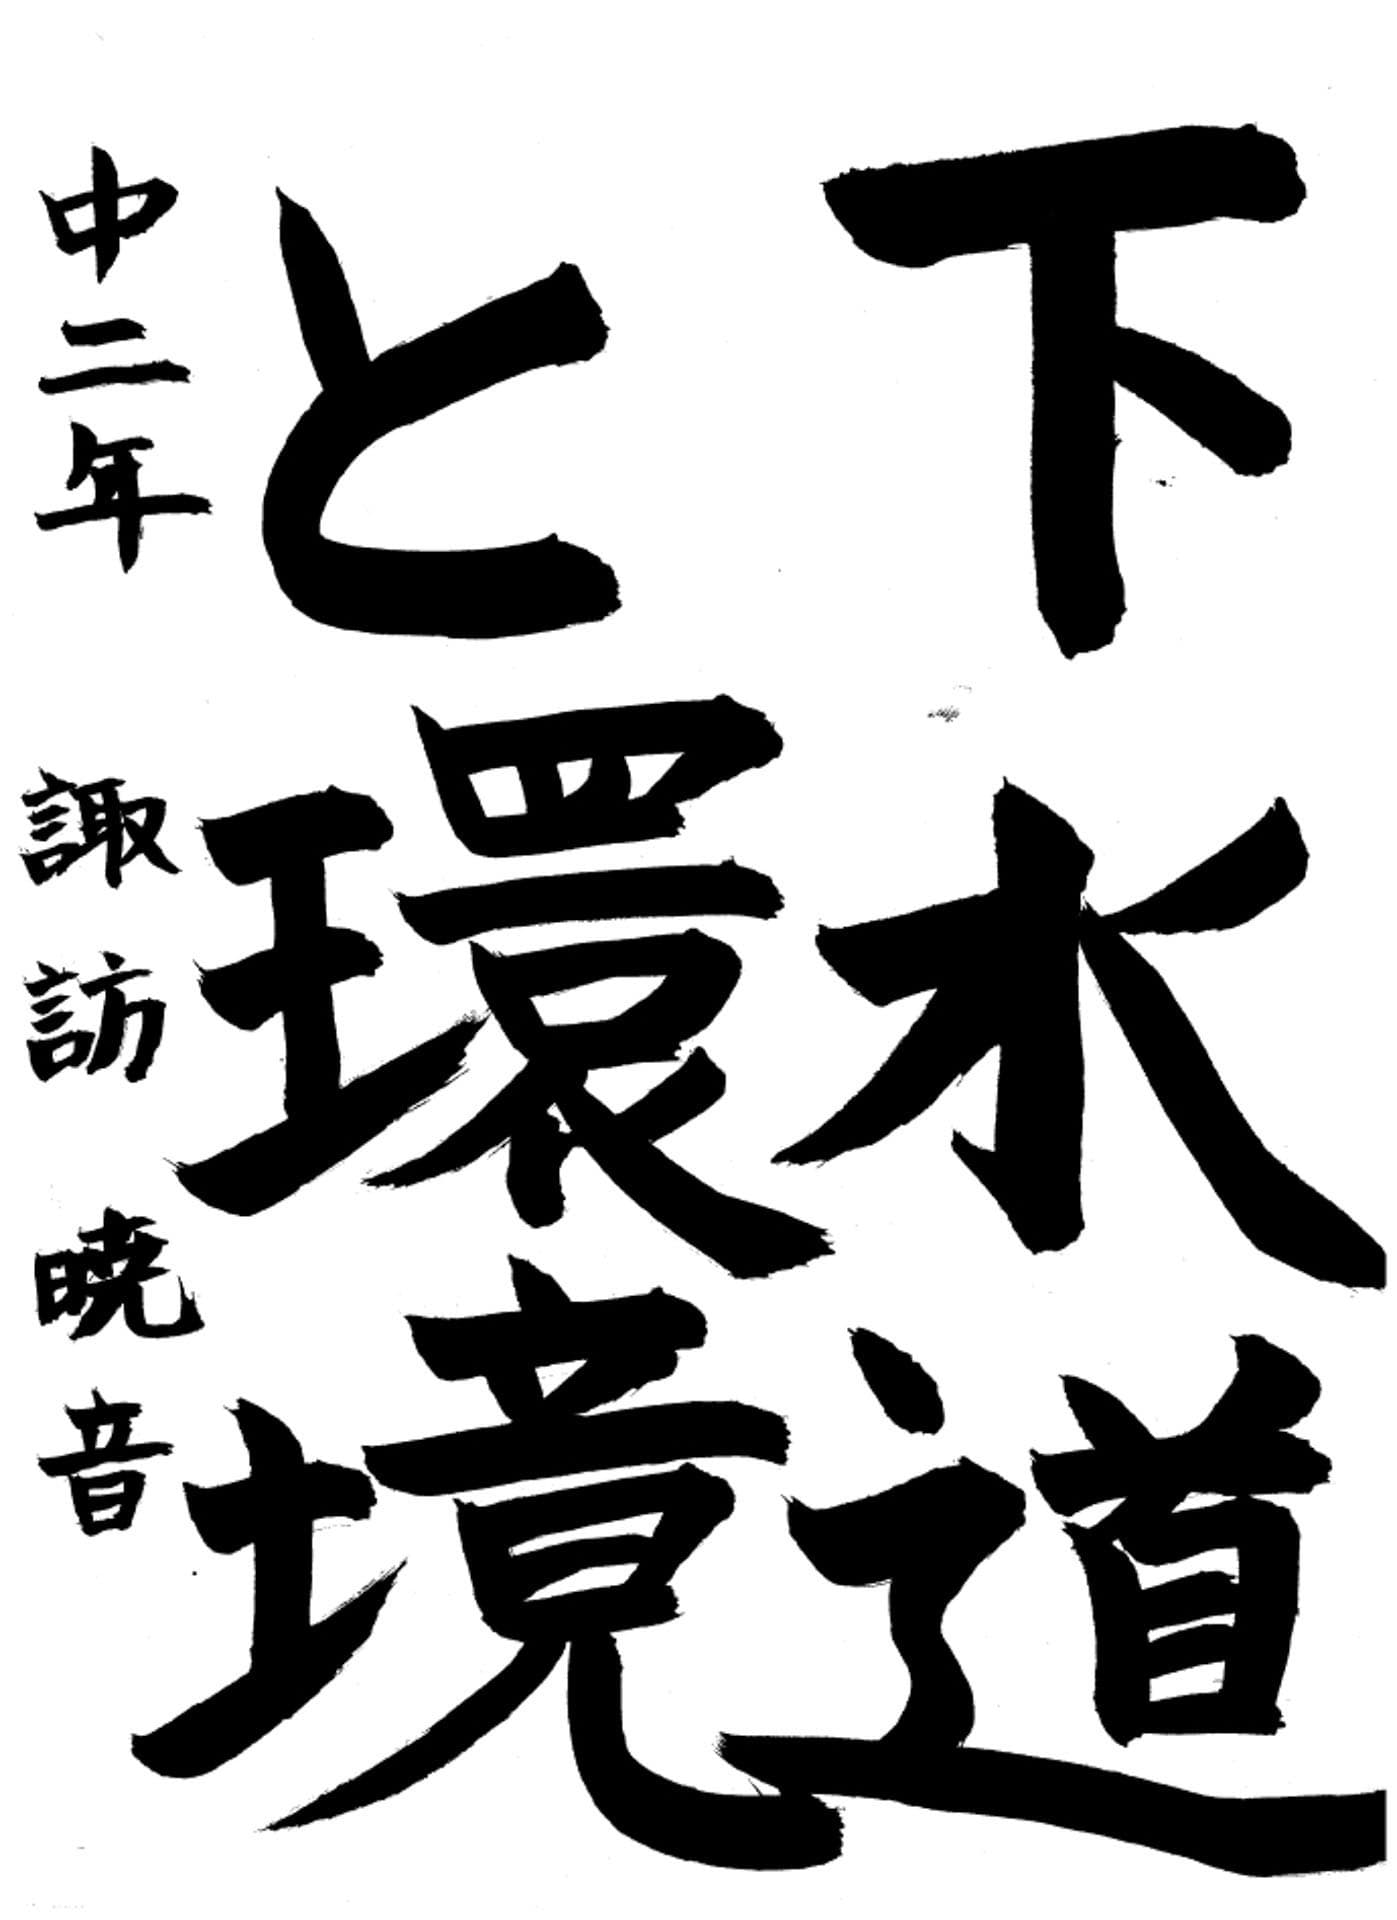 下水道
と環境
中二年 諏訪暁音